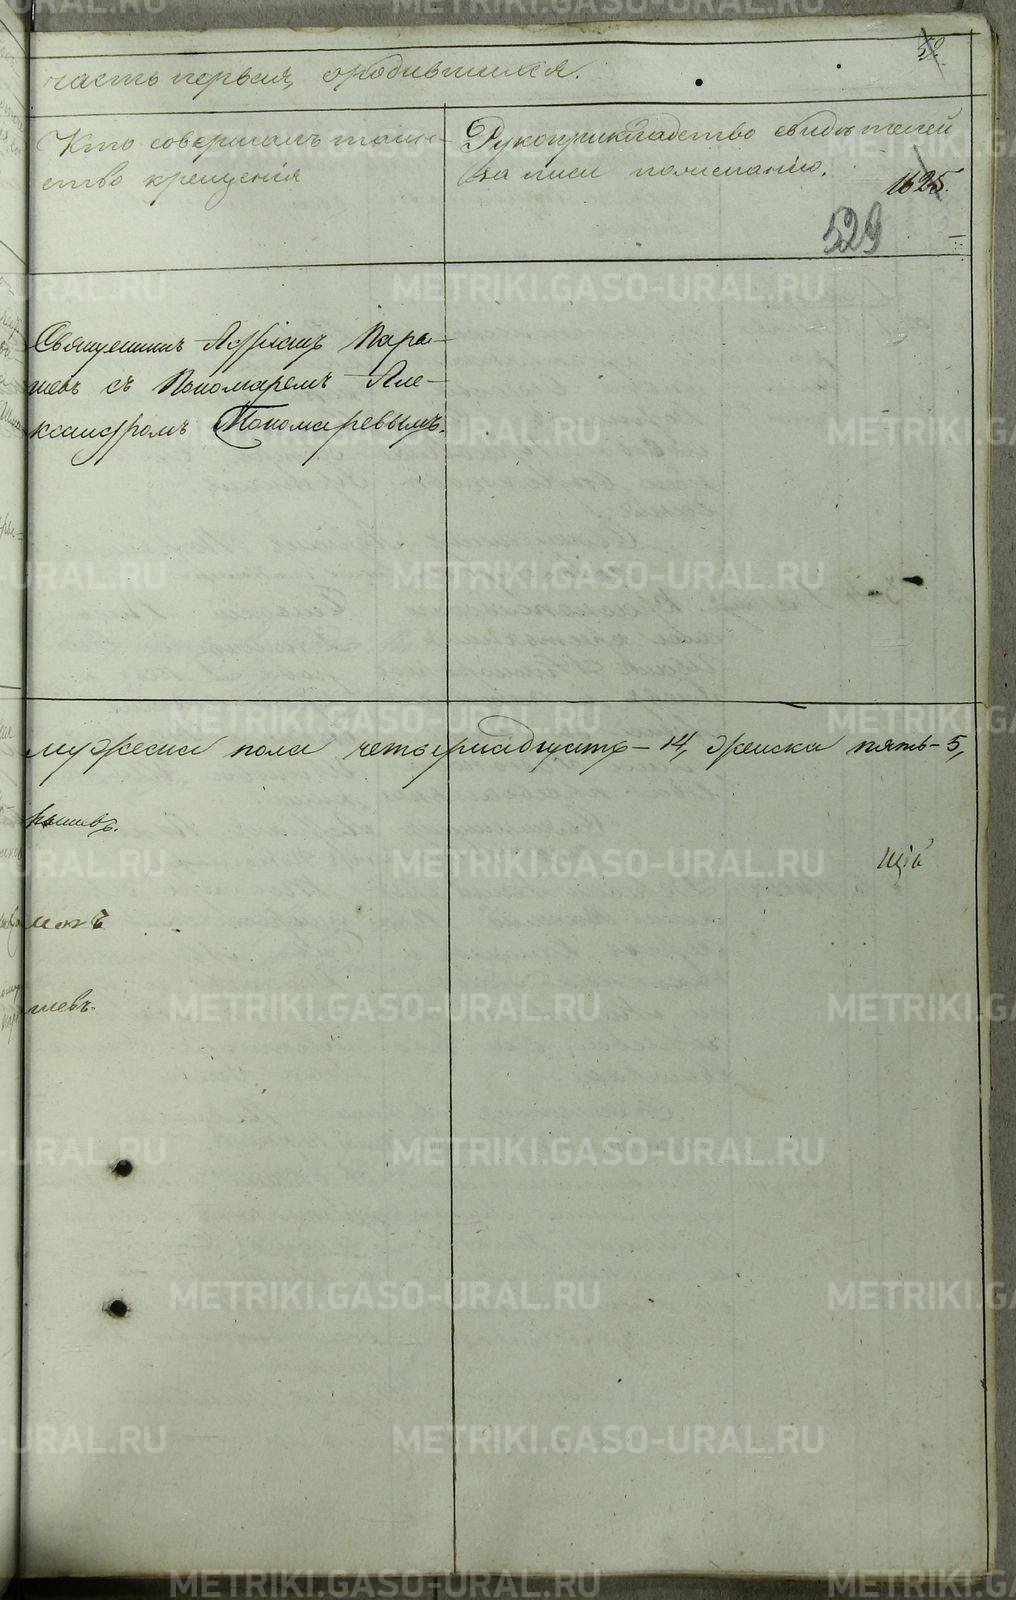 часть первая, о родившихся.
Кто совершалъ таин-
ство крещенія
Рукоприкладство свидѣтелей
записи по желанію.
1625.
529
Священникъ Пары-
шевъ съ Пономаремъ Але-
ксандромъ Пономаревымъ.
мужеска пола четырнадцать – 14, женска пять – 5,
рышевъ.
шевъ.
METRIKI.GASO-URAL.RU